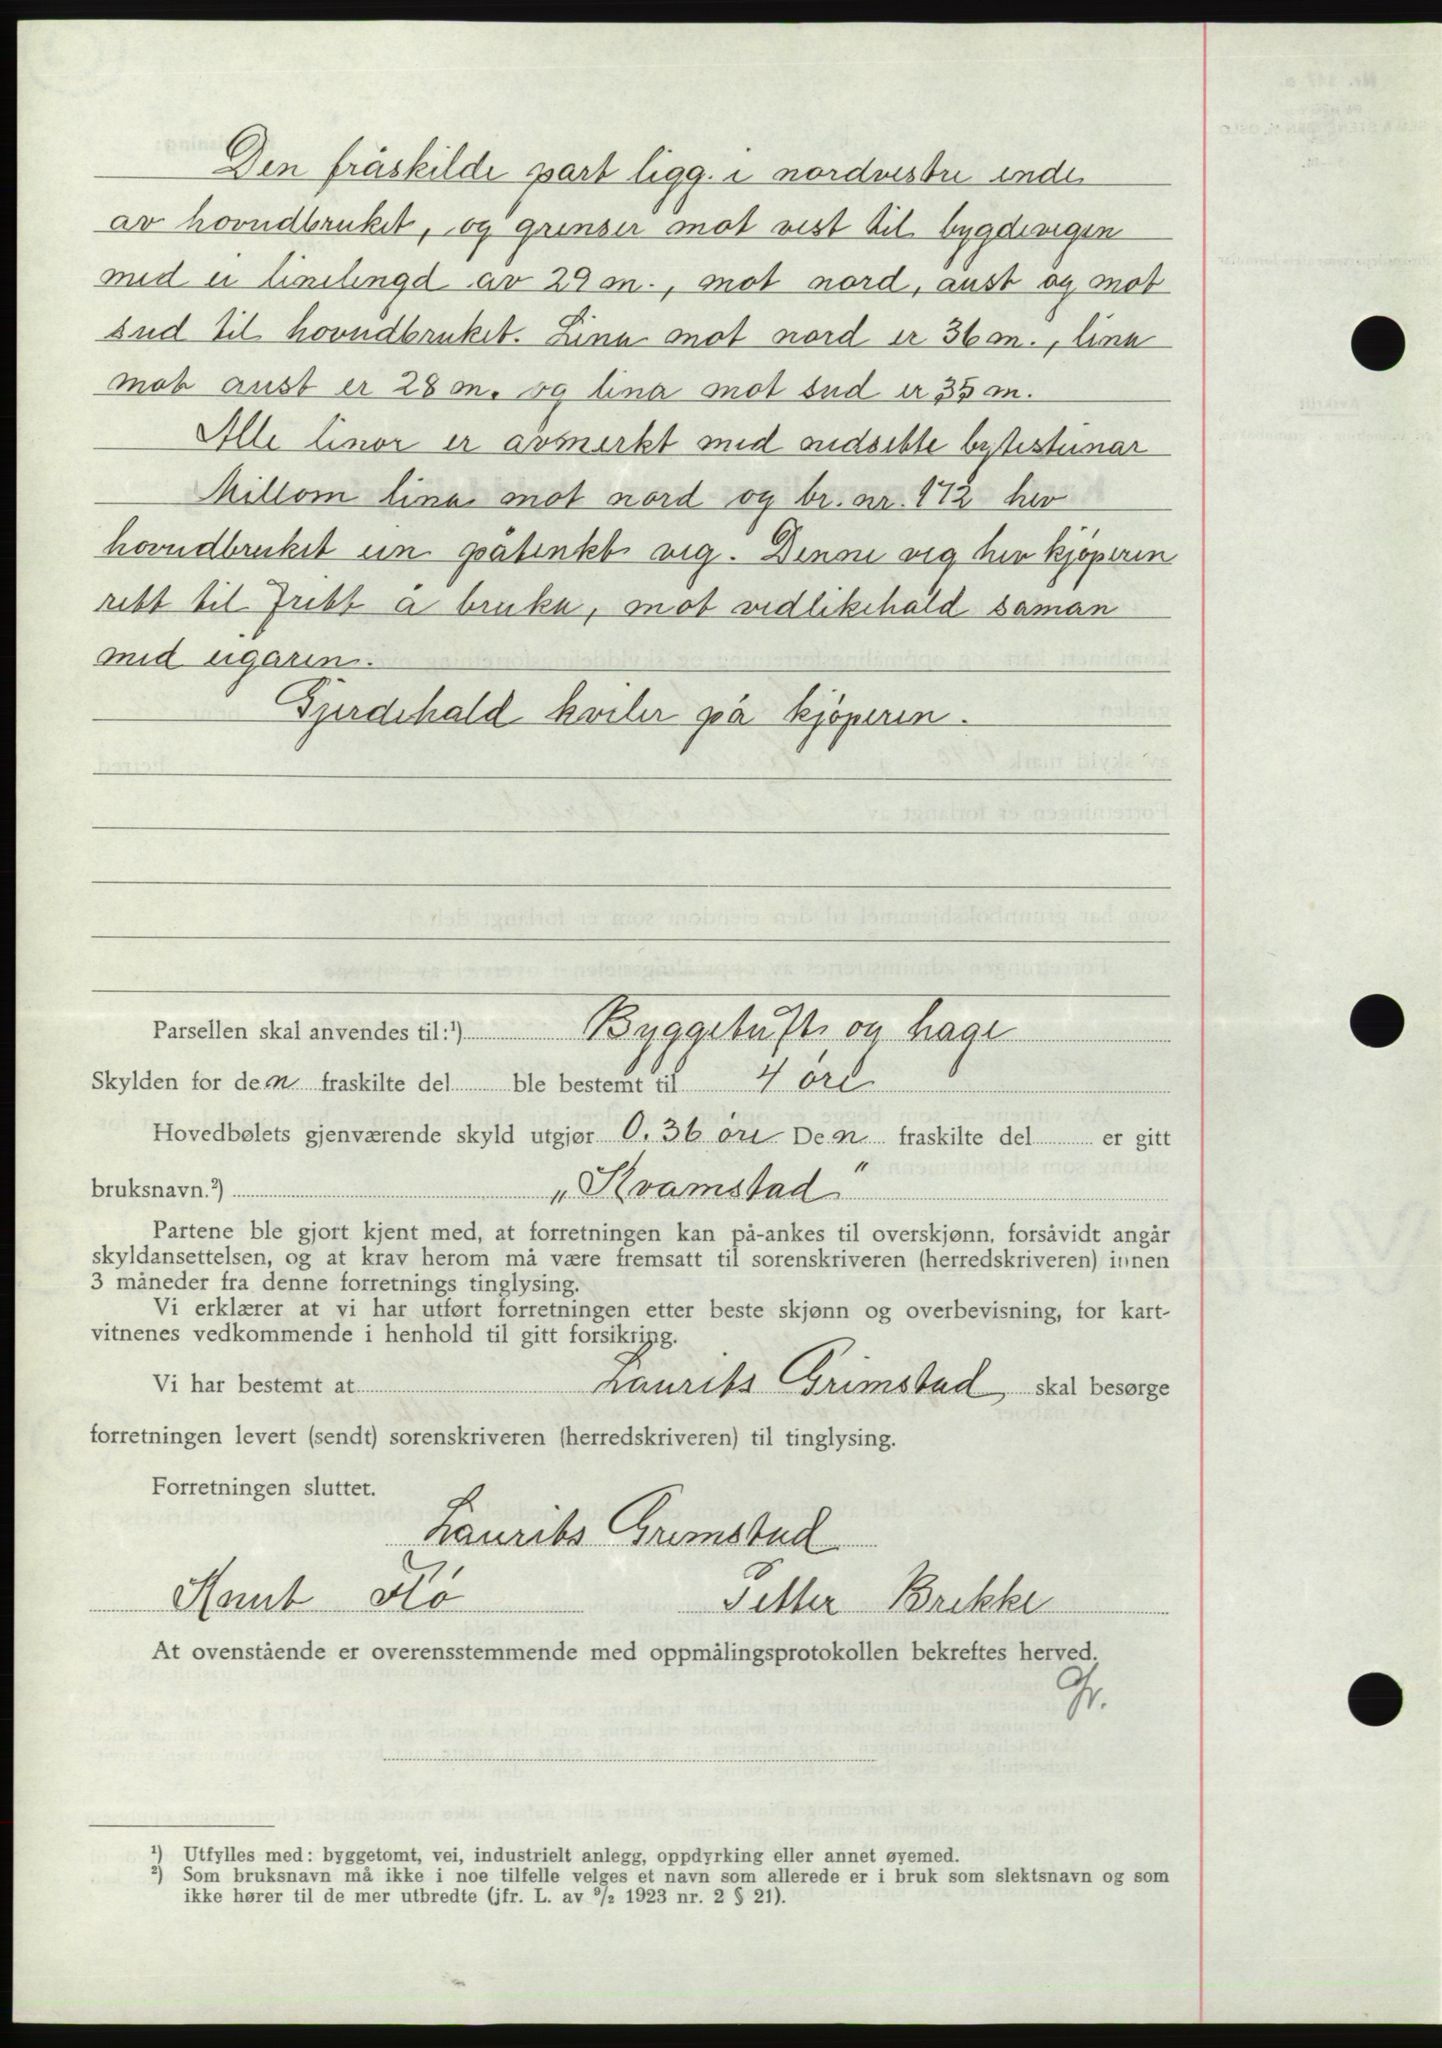 Den fråskilde part ligg. i nordvestre ende
av hovudbruket, og grenser mot vest til bygdevegen
med ei linelengd av 29 m., mot nord, aust og mot
sud til hovudbruket. Lina mot nord er 36 m., lina
mot aust er 28 m. og lina mot sud er 35 m.
Alle linor er avmerkt med nedsette bytesteinar
Millom lina mot nord og br. nr. 172 hev
hovudbruket ein påtenkt veg. Denne veg hev kjöperen
rett til fritt å bruka, mot vedlikehald saman
med eigaren.
Gjerdehald kviler på kjöperen.
Parsellen skal anvendes til:¹) Byggetuft og hage
Skylden for den fraskilte del ble bestemt til 4 öre
Hovedbølets gjenværende skyld utgjør 0.36 öre Den fraskilte del er gitt
bruksnavn.²) „Kvamstad"
Partene ble gjort kjent med, at forretningen kan på-ankes til overskjønn, forsåvidt angår
skyldansettelsen, og at krav herom må være fremsatt til sorenskriveren (herredskriveren) innen
3 måneder fra denne forretnings tinglysing.
Vi erklærer at vi har utført forretningen etter beste skjønn og overbevisning, for kart-
vitnenes vedkommende i henhold til gitt forsikring.
Vi har bestemt at Laurits Grimstad skal besørge
forretningen levert (sendt) sorenskriveren (herredskriveren) til tinglysing.
Forretningen sluttet.
Laurits Grimstad
Knut Flö Petter Brekke
At ovenstående er overensstemmende med oppmålingsprotokollen bekreftes herved.
Gr.
¹) Utfylles med: byggetomt, vei, industrielt anlegg, oppdyrking eller annet øyemed.
²) Som bruksnavn må ikke i noe tilfelle velges et navn som allerede er i bruk som slektsnavn og som
ikke hører til de mer utbredte (jfr. L. av ⁹/₂ 1923 nr. 2 § 21).